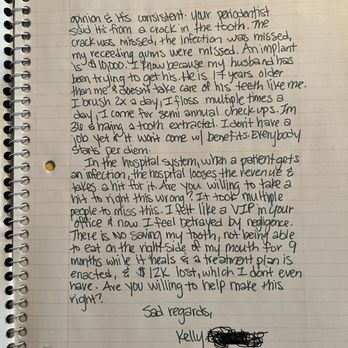 opinion & it's consistent. Your periodontist
said it's from a crack in the tooth. The
crack was missed, the infection was missed,
my receding gums were missed. An implant
is $10,000. I know because my husband has
been trying to get his. He is 17 years older
than me & doesn't take care of his teeth like me.
I brush 2x a day, I floss multiple times a
day, I come for semi annual check-ups. I'm
& having a tooth extracted. I don't have a
job yet & it wont come w/ benefits. Everybody
starts per diem.
In the hospital system, when a patient gets
an infection, the hospital looses the revenue &
takes a hit for it. Are you willing to take a
hit to right this wrong? It took multiple
people to miss this. I felt like a VIP in your
office & now I feel betrayed by negligence.
There is no saving my tooth, not being able
to eat on the right side of my mouth for 9
months while it heals & a treatment plan is
enacted, & $12K lost, which I don't even
have. Are you willing to help make this
right?
Sad regards,
Kelly